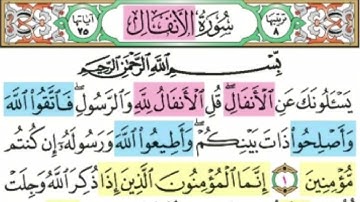 ترتيبها ٨ سُورَةُ الأَنفَال آياتها ٧٥
بِسْمِ اللَّهِ الرَّحْمَٰنِ الرَّحِيمِ
يَسْـَٔلُونَكَ عَنِ ٱلْأَنفَالِ ۖ قُلِ ٱلْأَنفَالُ لِلَّهِ وَٱلرَّسُولِ ۖ فَٱتَّقُوا۟ ٱللَّهَ
وَأَصْلِحُوا۟ ذَاتَ بَيْنِكُمْ ۖ وَأَطِيعُوا۟ ٱللَّهَ وَرَسُولَهُۥٓ إِن كُنتُم
مُّؤْمِنِينَ ١ إِنَّمَا ٱلْمُؤْمِنُونَ ٱلَّذِينَ إِذَا ذُكِرَ ٱللَّهُ وَجِلَتْ